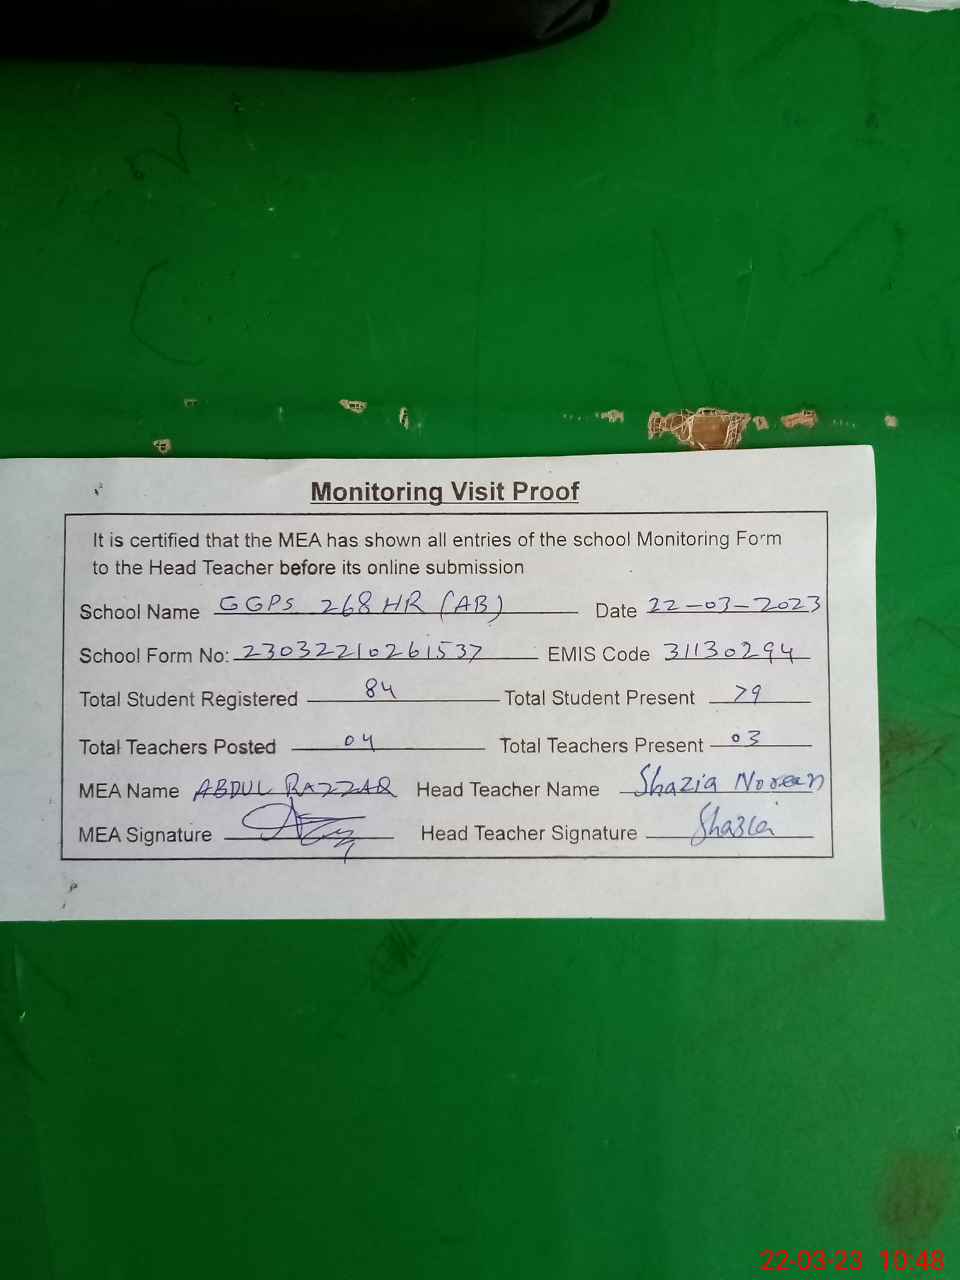 Monitoring Visit Proof
It is certified that the MEA has shown all entries of the school Monitoring Form
to the Head Teacher before its online submission
School Name GGPS 268 HR (AB) Date 22-03-2023
School Form No: 23032210261537 EMIS Code 31130294
Total Student Registered 84 Total Student Present 79
Total Teachers Posted 04 Total Teachers Present 03
MEA Name ABDUL RAZZAQ Head Teacher Name Shazia Noreen
MEA Signature Head Teacher Signature Shazia
22-03-23 10:48